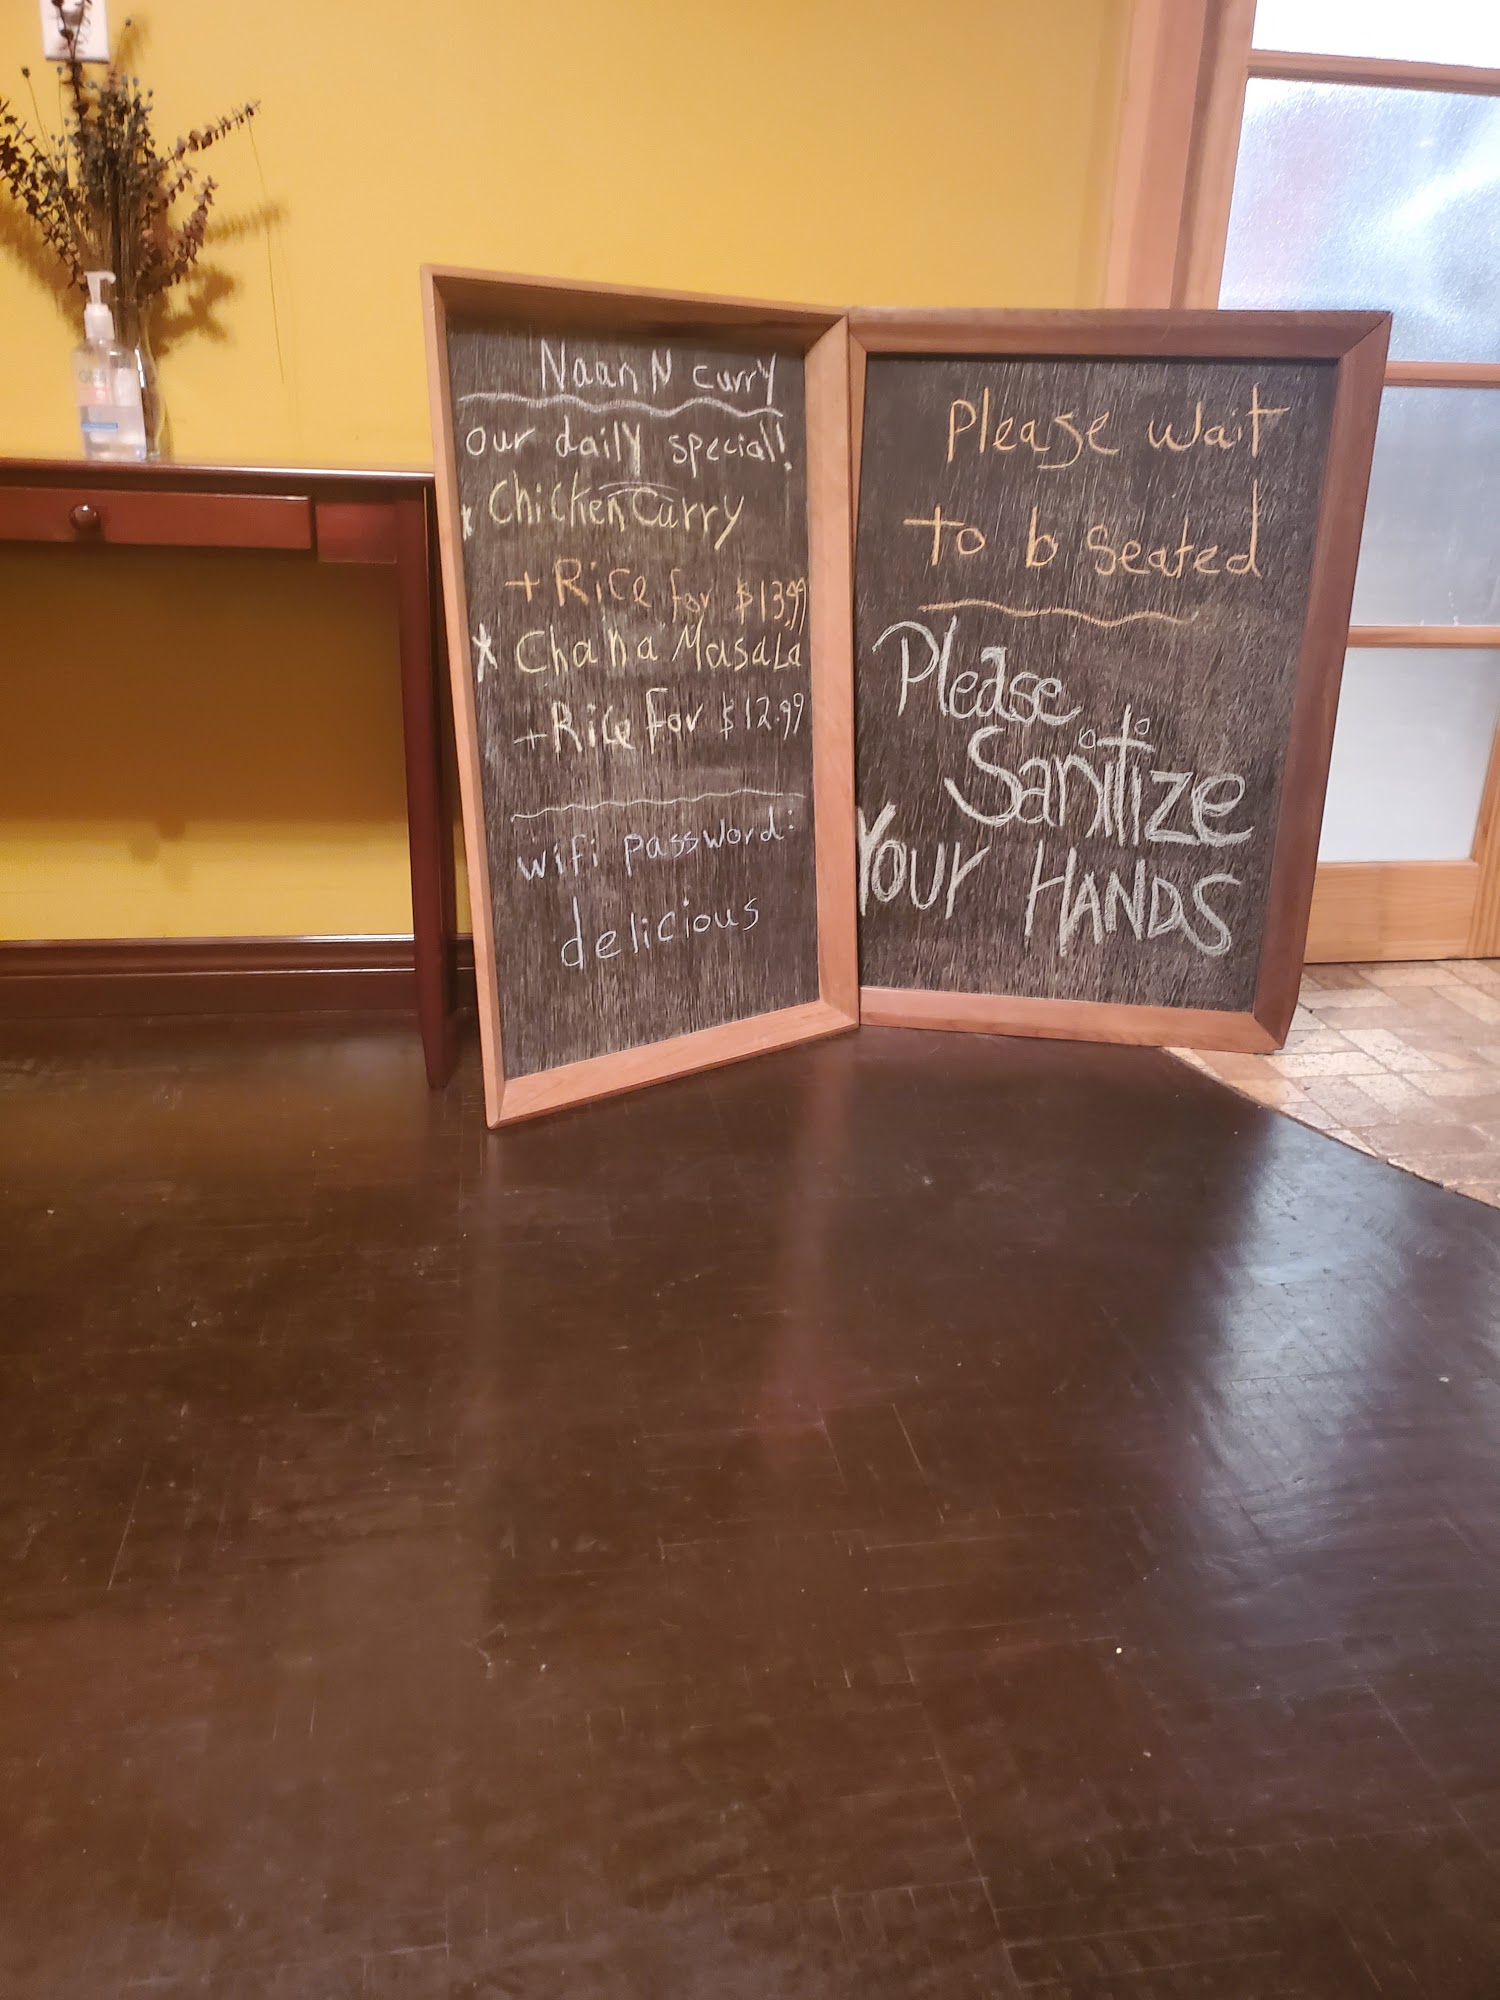 Naan N curry
our daily special!
* Chicken Curry
+ Rice for $13.99
* Chana Masala
+ Rice For $12.99
wifi password:
delicious
Please wait
to b seated
Please
Sanitize
Your HANDS